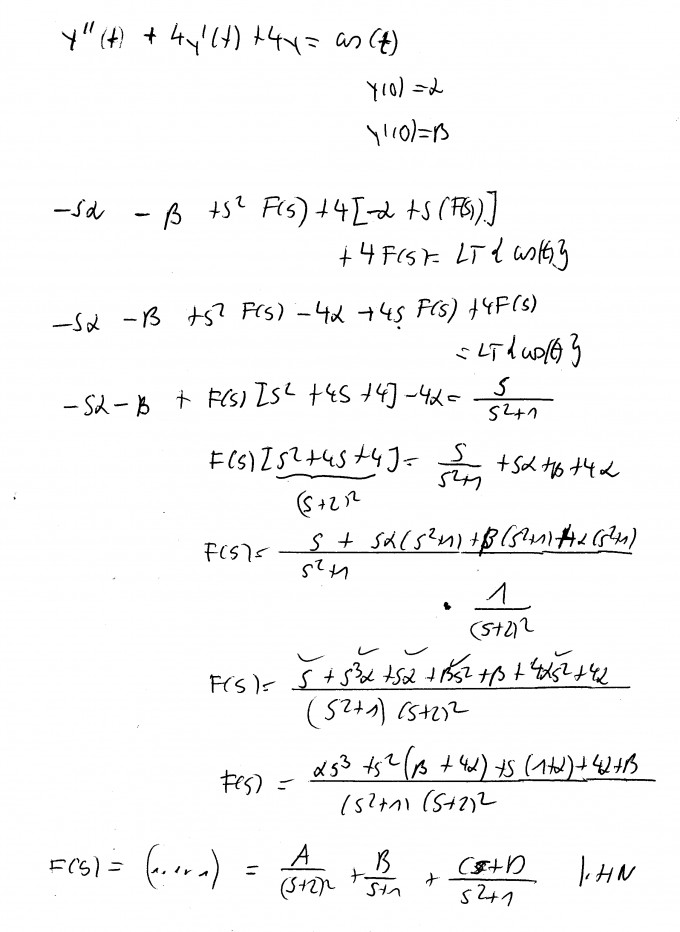 y''(t) + 4y'(t) + 4y = cos(t)
y(0) = α
y'(0) = β
-sα - β + s² F(s) + 4[-α + s(F(s))]
+ 4F(s) = LT{cos(t)}
-sα - β + s² F(s) - 4α + 4s F(s) + 4F(s)
= LT{cos(t)}
-sα - β + F(s) [s² + 4s + 4] - 4α = s/(s²+1)
F(s) [s² + 4s + 4] = s/(s²+1) + sα + β + 4α
(s+2)²
F(s) = (s + sα(s²+1) + β(s²+1) + 4α(s²+1))/(s²+1)
· 1/(s+2)²
F(s) = (s + s³α + sα + βs² + β + 4αs² + 4α)/((s²+1)(s+2)²)
F(s) = (αs³ + s²(β + 4α) + s(1+α) + 4α + β)/((s²+1)(s+2)²)
F(s) = (.....) = A/(s+2)² + B/(s+1) + (Cs+D)/(s²+1) |·HN